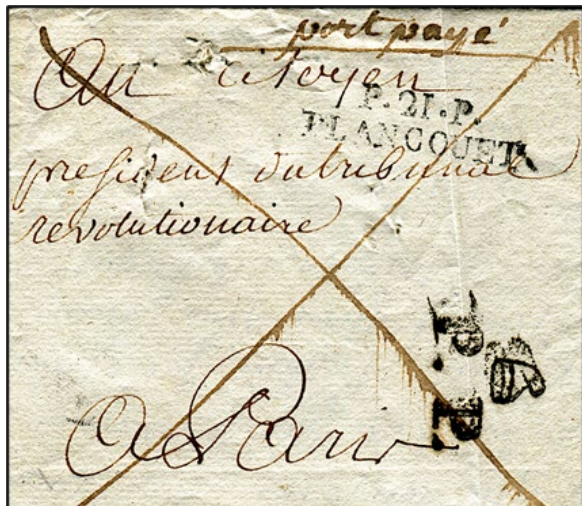 port payé
Au citoyen
P.21.P.
PLANCOUET
president du tribunal
revolutionaire
P. P.
a Paris